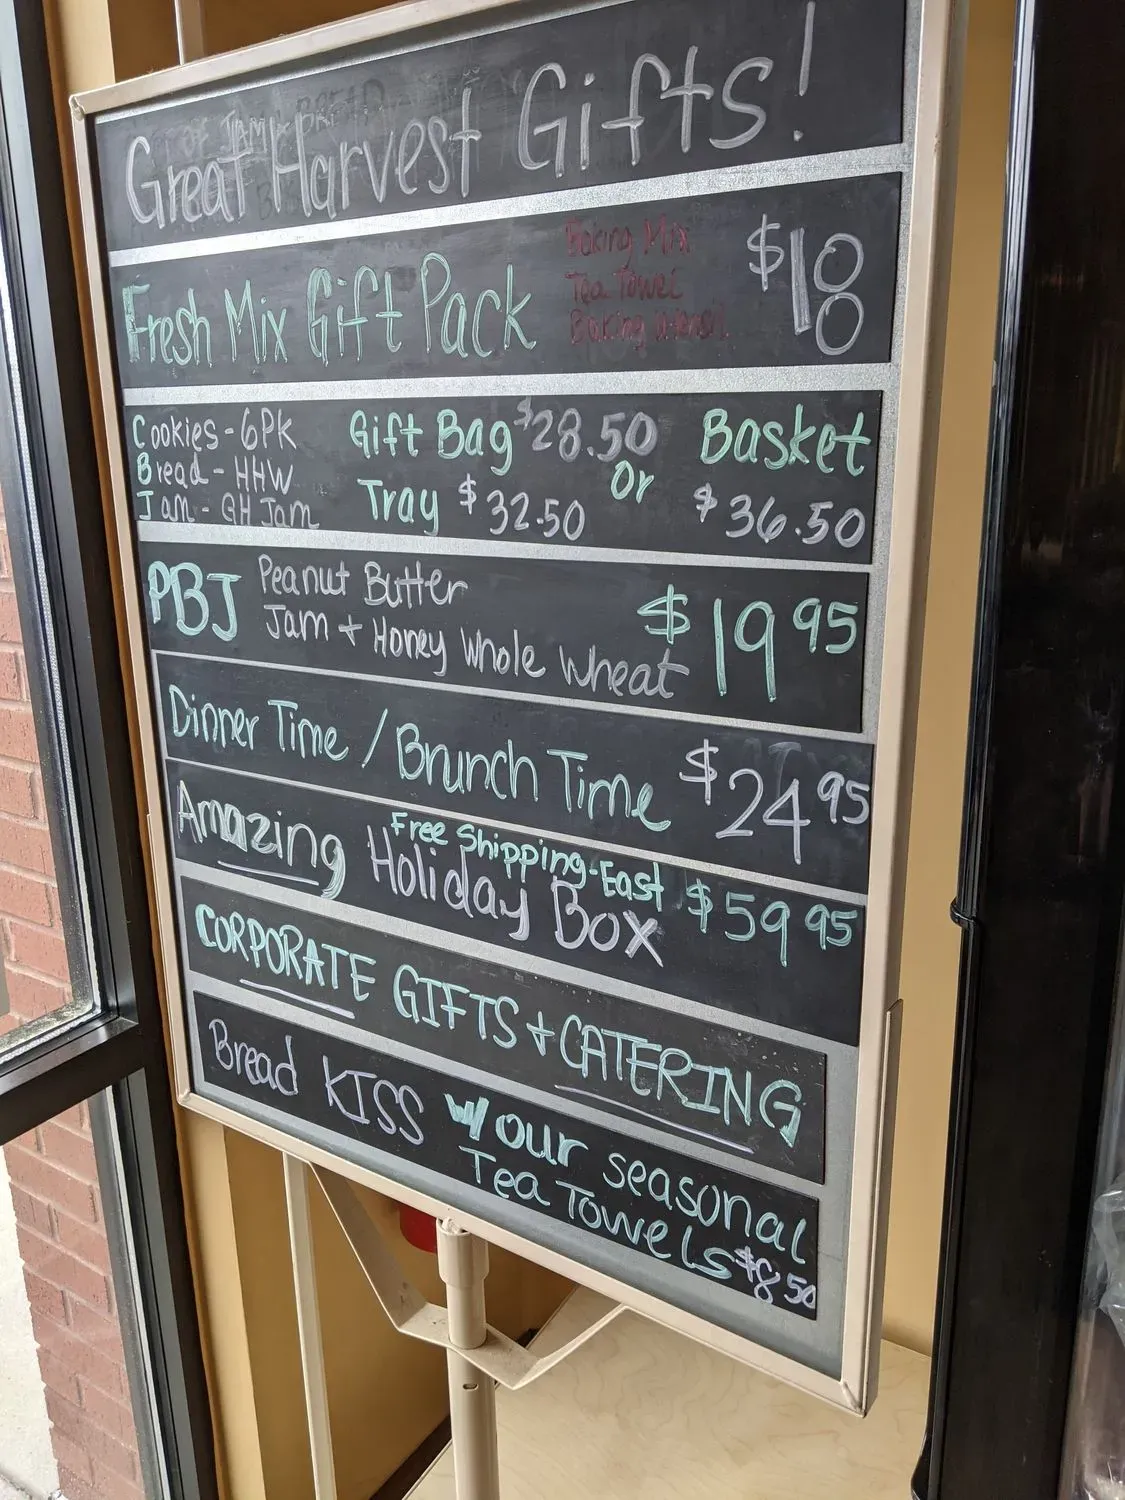 Great Harvest Gifts!
Fresh Mix Gift Pack
Baking Mix
Tea Towel
Baking
$18
Cookies - 6PK
Bread - HHW
Jam - GH Jam
Gift Bag $28.50
Tray $32.50
Or
Basket
$36.50
PBJ
Peanut Butter
Jam + Honey Whole Wheat
$19.95
Dinner Time / Brunch Time $24.95
Amazing Holiday Box
Free Shipping-East
$59.95
CORPORATE GIFTS + CATERING
Bread KISS w/ our seasonal
Tea Towels $8.50